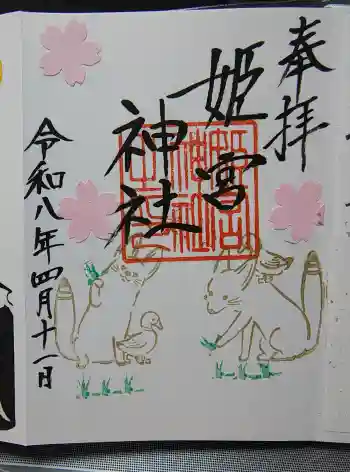 奉拝
姫宮
神社
令和八年四月十一日